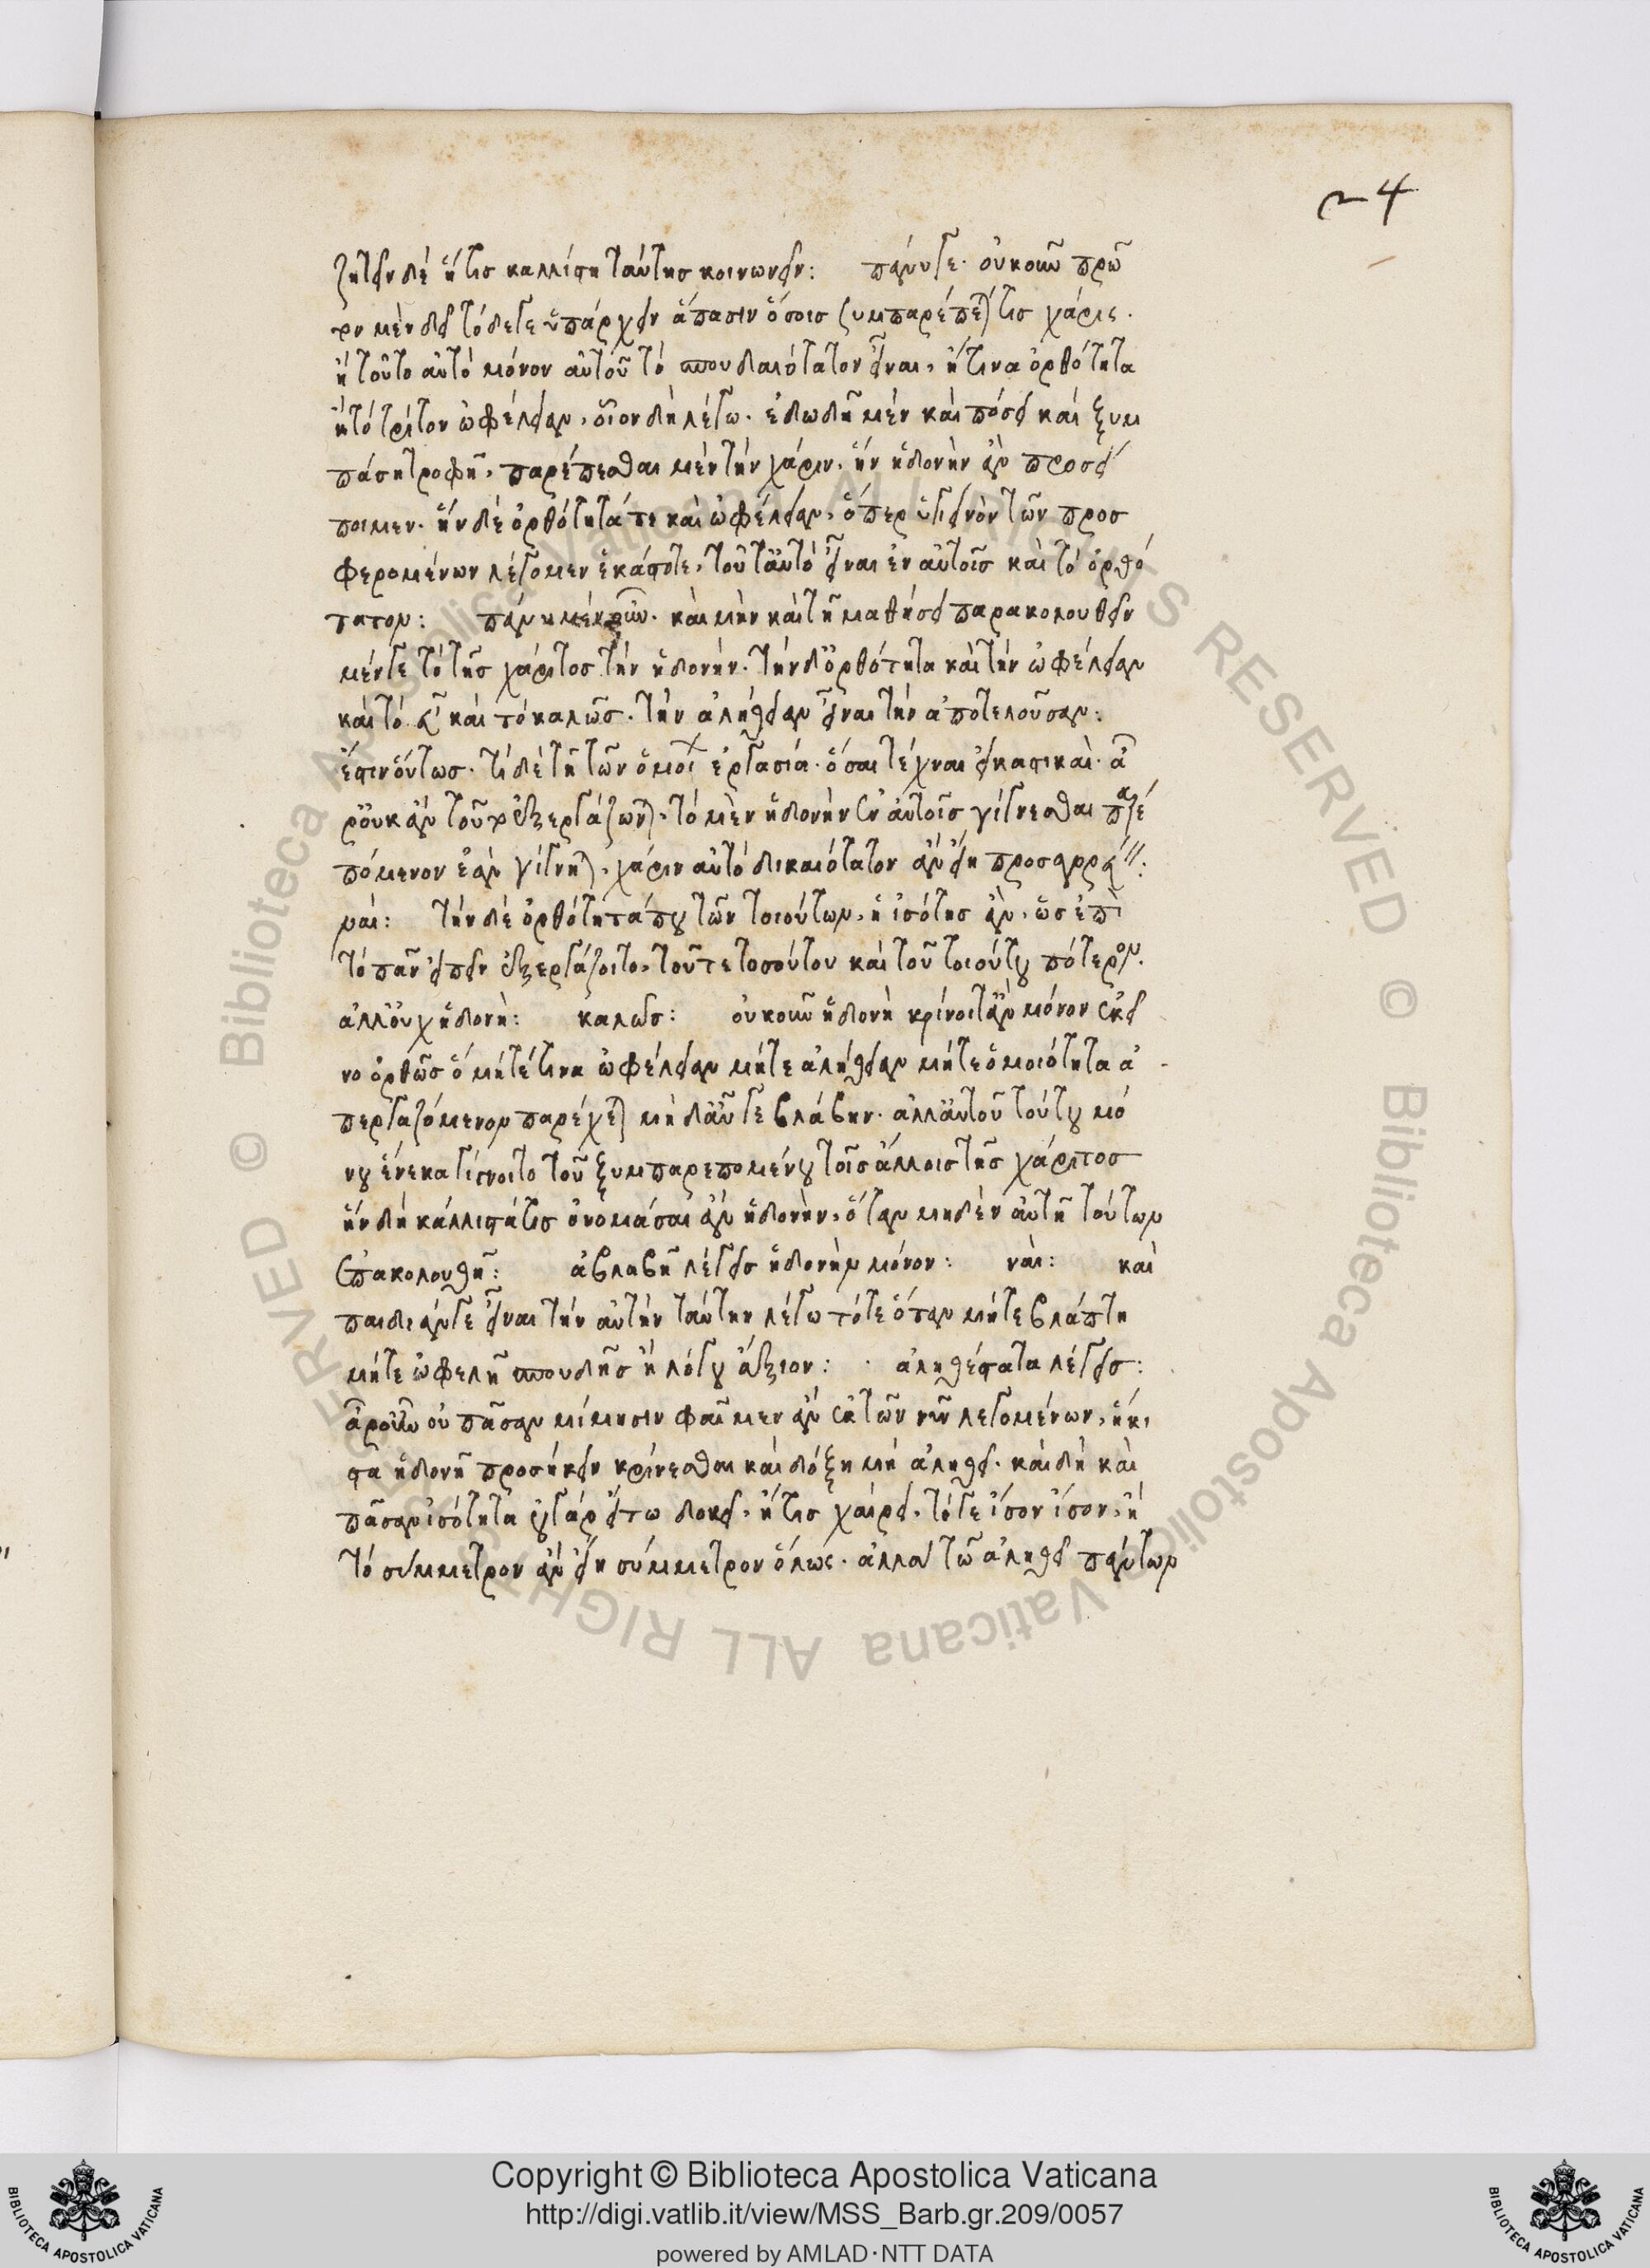 24
ζητεῖν δὲ ἥτις καλλίστη ταύτης κοινωνεῖν: πάνυ γε. οὐκοῦν πρῶ
τον μὲν δεῖ τόδε γε ὑπάρχειν ἅπασιν ὅσοις συμπαρέπεταί τις χάρις.
ἢ τοῦτο αὐτὸ μόνον αὐτοῦ τὸ σπουδαιότατον εἶναι, ἤ τινα ὀρθότητα
ἢ τὸ τρίτον ὠφέλειαν, οἷον δὴ λέγω. ἐδωδῇ μὲν καὶ πόσει καὶ ξυμ
πάσῃ τροφῇ, παρέπεσθαι μὲν τὴν χάριν, ἣν ἡδονὴν ἂν προσεί
ποιμεν. ἣν δὲ ὀρθότητά τε καὶ ὠφέλειαν, ὅπερ ὑγιεινὸν τῶν προσ
φερομένων λέγομεν ἑκάστοτε, τοῦτ' αὐτὸ εἶναι ἐν αὐτοῖς καὶ τὸ ὀρθό
τατον: πάνυ μὲν οὖν. καὶ μὴν καὶ τῇ μαθήσει παρακολουθεῖν
μέν γε τὸ τῆς χάριτος τὴν ἡδονήν. τὴν δ' ὀρθότητα καὶ τὴν ὠφέλειαν
καὶ τὸ εὖ καὶ τὸ καλῶς. τὴν ἀλήθειαν εἶναι τὴν ἀποτελοῦσαν:
ἔστιν ὄντως. τί δὲ τῇ τῶν ὁμοίων ἐργασίᾳ. ὅσαι τέχναι εἰκαστικαί. ἆ
ρ' οὐκ ἂν τοῦτο ἐξεργάζωνται, τὸ μὲν ἡδονὴν ἐν αὐτοῖς γίγνεσθαι παρε
πόμενον ἐὰν γίγνηται, χάριν αὐτὸ δικαιότατον ἂν εἴη προσαγορεύειν:
ναί: τὴν δὲ ὀρθότητά που τῶν τοιούτων, ἡ ἰσότης ἄν, ὡς ἐπὶ
τὸ πᾶν εἰπεῖν ἐξεργάζοιτο, τοῦ τε τοσούτου καὶ τοῦ τοιούτου πότερον.
ἀλλ' οὐχ ἡδονή: καλῶς: οὐκοῦν ἡδονῇ κρίνοιτ' ἂν μόνον ἐκεῖ
νο ὀρθῶς ὃ μήτέ τινα ὠφέλειαν μήτε ἀλήθειαν μήτε ὁμοιότητα ἀ
περγαζόμενον παρέχεται μὴ δ' αὖ γε βλάβην. ἀλλ' αὐτοῦ τούτου μό
νου ἕνεκα γίγνοιτο τοῦ ξυμπαρεπομένου τοῖς ἄλλοις τῆς χάριτος
ἣν δὴ κάλλιστά τις ὀνομάσαι ἂν ἡδονήν, ὅταν μηδὲν αὐτῇ τούτων
ἐπακολουθῇ: ἀβλαβῆ λέγεις ἡδονὴν μόνον: ναί: καὶ
παιδιάν γε εἶναι τὴν αὐτὴν ταύτην λέγω τότε ὅταν μήτε βλάπτῃ
μήτε ὠφελῇ σπουδῆς ἢ λόγου ἄξιον: ἀληθέστατα λέγεις:
ἆρ' οὖν οὐ πᾶσαν μίμησιν φαῖμεν ἂν ἐκ τῶν νῦν λεγομένων, ἥκι
στα ἡδονῇ προσήκειν κρίνεσθαι καὶ δόξῃ μὴ ἀληθεῖ. καὶ δὴ καὶ
πᾶσαν ἰσότητα οὐ γὰρ εἴ τῳ δοκεῖ, ἤ τις χαίρει, τό γε ἴσον ἴσον, ἢ
τὸ σύμμετρον ἂν εἴη σύμμετρον ὅλως. ἀλλὰ τῷ ἀληθεῖ πάντων
Copyright © Biblioteca Apostolica Vaticana
http://digi.vatlib.it/view/MSS_Barb.gr.209/0057
powered by AMLAD·NTT DATA
BIBLIOTECA APOSTOLICA VATICANA
BIBLIOTECA APOSTOLICA VATICANA
© Biblioteca Apostolica Vaticana ALL RIGHTS RESERVED © Biblioteca Apostolica Vaticana ALL RIGHTS RESERVED